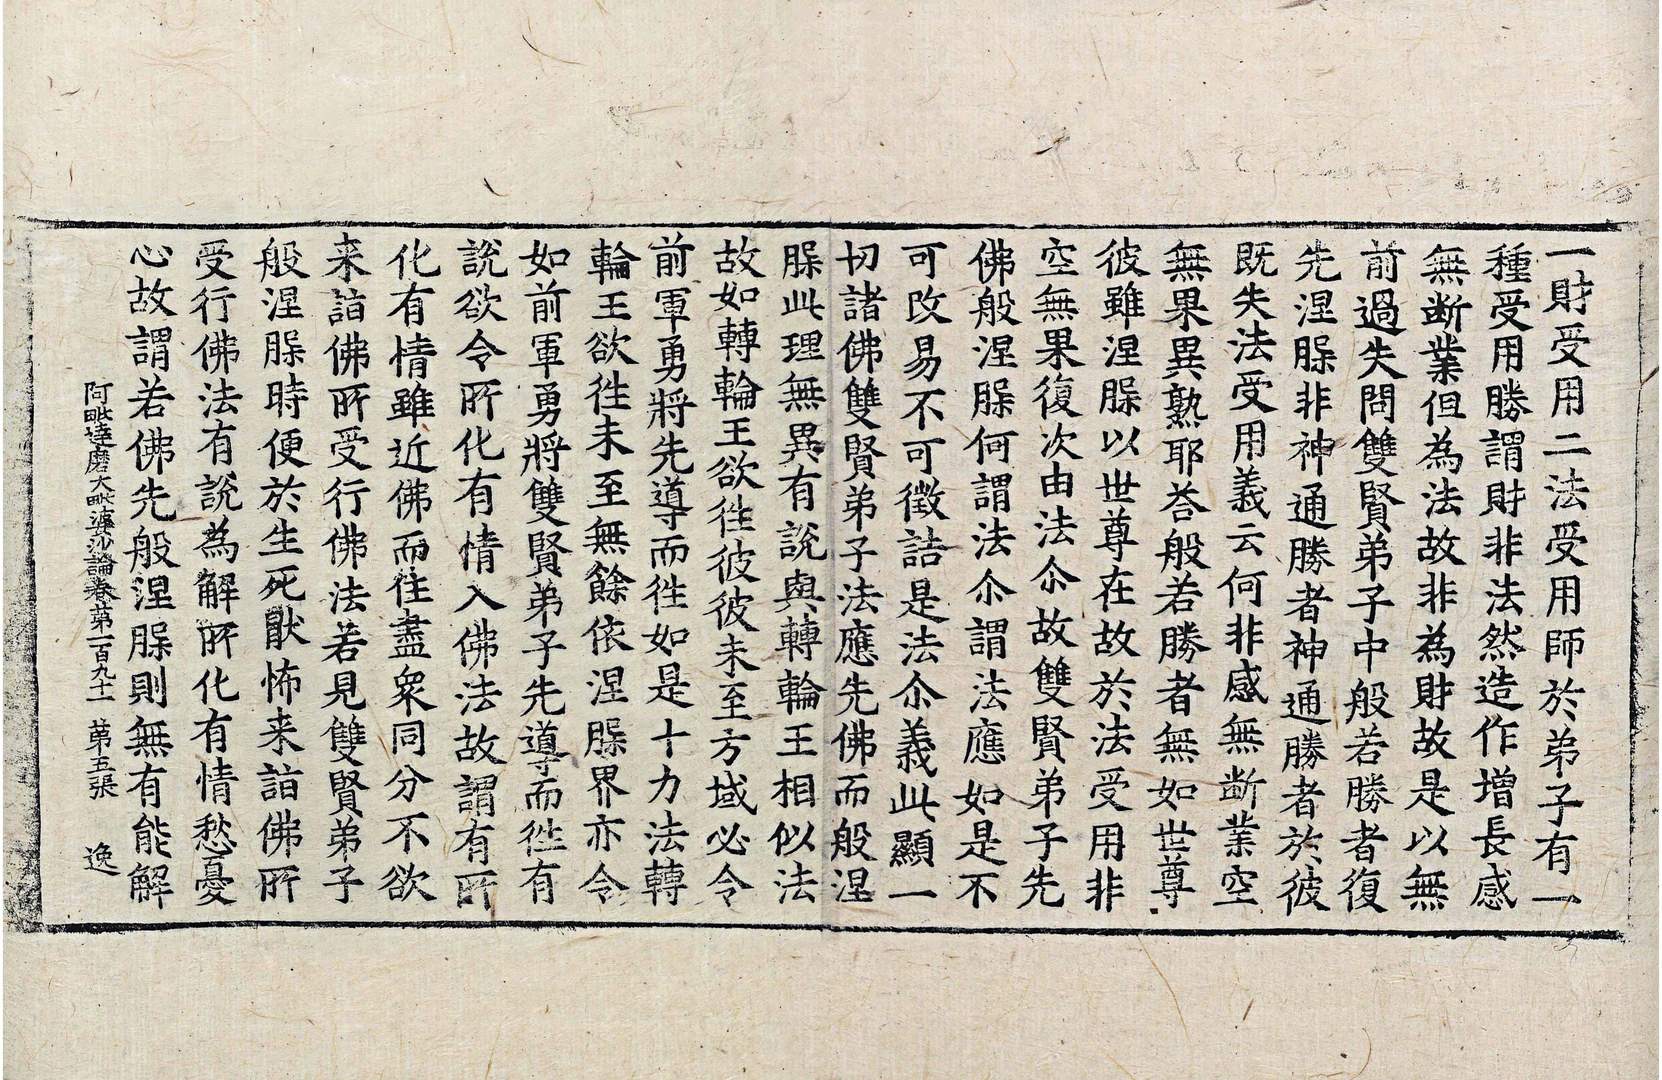 一財受用二法受用師於弟子有一
種受用勝謂財非法然造作增長感
無断業但為法故非為財故是以無
前過失問雙賢弟子中般若勝者復
先涅槃非神通勝者神通勝者於彼
既失法受用義云何非感無断業空
無果異熟耶荅般若勝者無如世尊
彼雖涅槃以世尊在故於法受用非
空無果復次由法尒故雙賢弟子先
佛般涅槃何謂法尒謂法應如是不
可改易不可徵詰是法尒義此顯一
切諸佛雙賢弟子法應先佛而般涅
槃此理無異有說與轉輪王相似法
故如轉輪王欲徃彼彼未至方域必令
前軍勇將先導而徃如是十力法轉
輪王欲徃未至無餘依涅槃界亦令
如前軍勇將雙賢弟子先導而徃有
說欲令所化有情入佛法故謂有所
化有情雖近佛而住盡衆同分不欲
来詣佛所受行佛法若見雙賢弟子
般涅槃時便於生死猒怖来詣佛所
受行佛法有說為解所化有情愁憂
心故謂若佛先般涅槃則無有能解
阿毗達磨大毗婆沙論卷第一百九十一 第五張 逸